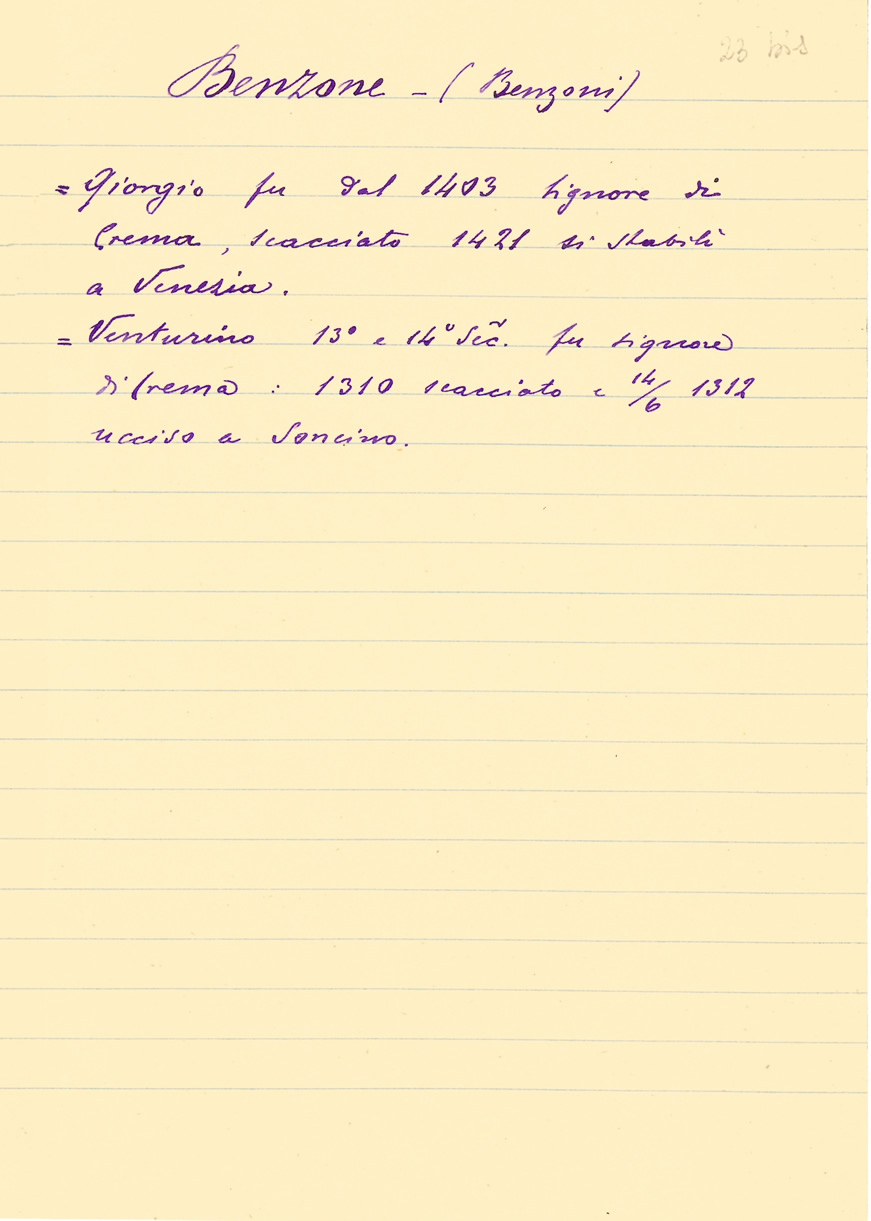 23 bis
Benzone - (Benzoni)
= Giorgio fu dal 1403 Signore di
Crema, scacciato 1421 si stabilì
a Venezia.
= Venturino 13° e 14° Sec. fu signore
di Crema : 1310 scacciato e 14/6 1312
ucciso a Soncino.